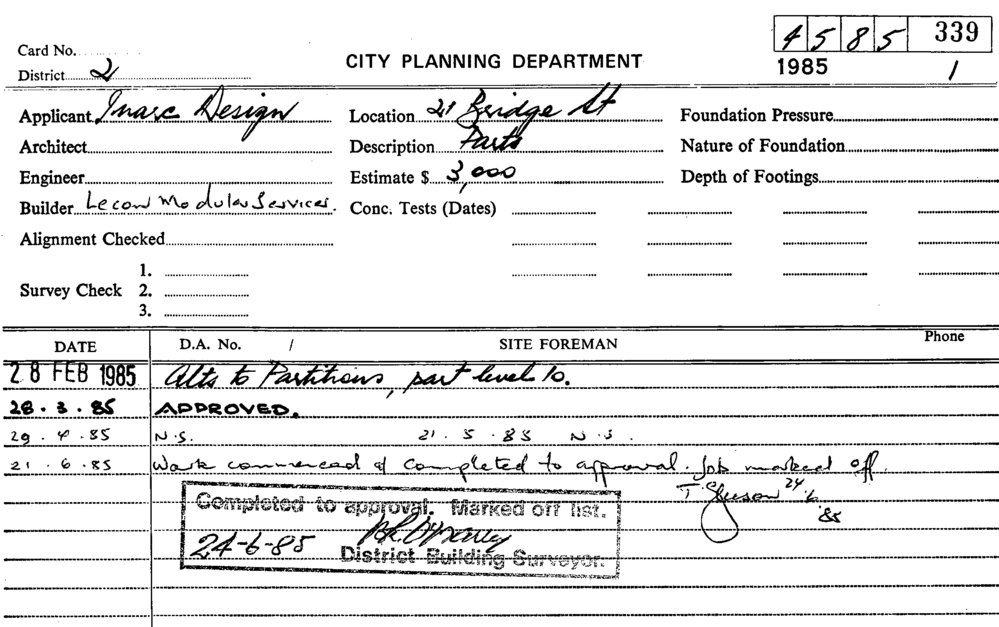 4 5 8 5 339
Card No.
CITY PLANNING DEPARTMENT
1985 1
District 2
Applicant Inarc Design Location 21 Bridge St Foundation Pressure
Architect Description Parts Nature of Foundation
Engineer Estimate $ 3,000 Depth of Footings
Builder Lecon Modular Services. Conc. Tests (Dates)
Alignment Checked
1.
Survey Check 2.
3.
DATE D.A. No. / SITE FOREMAN Phone
28 FEB 1985 Alts to Partitions, part level 10.
28 . 3 . 85 APPROVED.
29 . 4 . 85 N.S. 21 . 5 . 85 N.S.
21 . 6 . 85 Work commenced & completed to approval. Job marked off.
T. 24 6 85
Completed to approval. Marked off list.
24-6-85
District Building Surveyor.